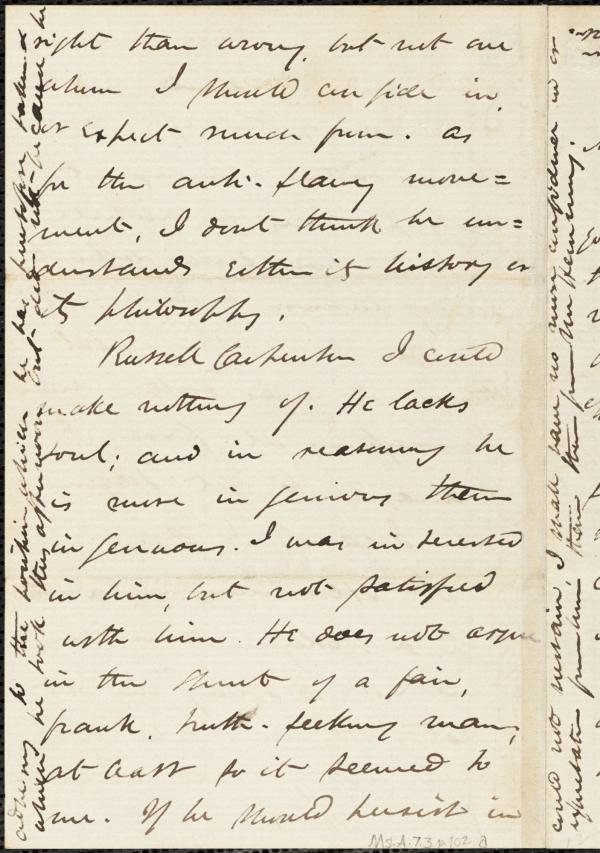 right than wrong, but not one
whom I should confide in,
or expect much from. As
for the anti-slavery move=
ment, I dont think he un=
derstands either its history or
its philosophy.
Russell Carpenter I could
make nothing of. He lacks
soul; and in reasoning he
is more ingenious than
ingenuous. I was interested
in him, but not satisfied
with him. He does not argue
in the spirit of a fair,
frank, truth-seeking man;
at least so it seemed to
me. If he should persist in
adhering to the position which he has heretofore taken, &
where he took this afternoon but did not
could not sustain, I shall have no more confidence in or
expectation from him than from
Ms.A.7.3 p.102